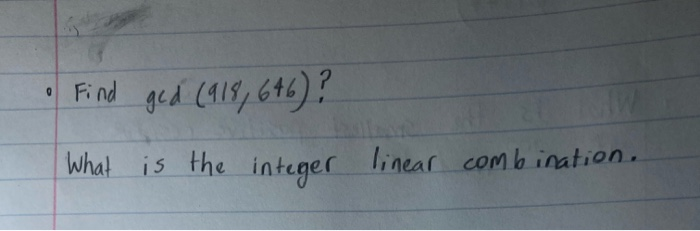 • Find gcd (918, 646)?
What is the integer linear combination.